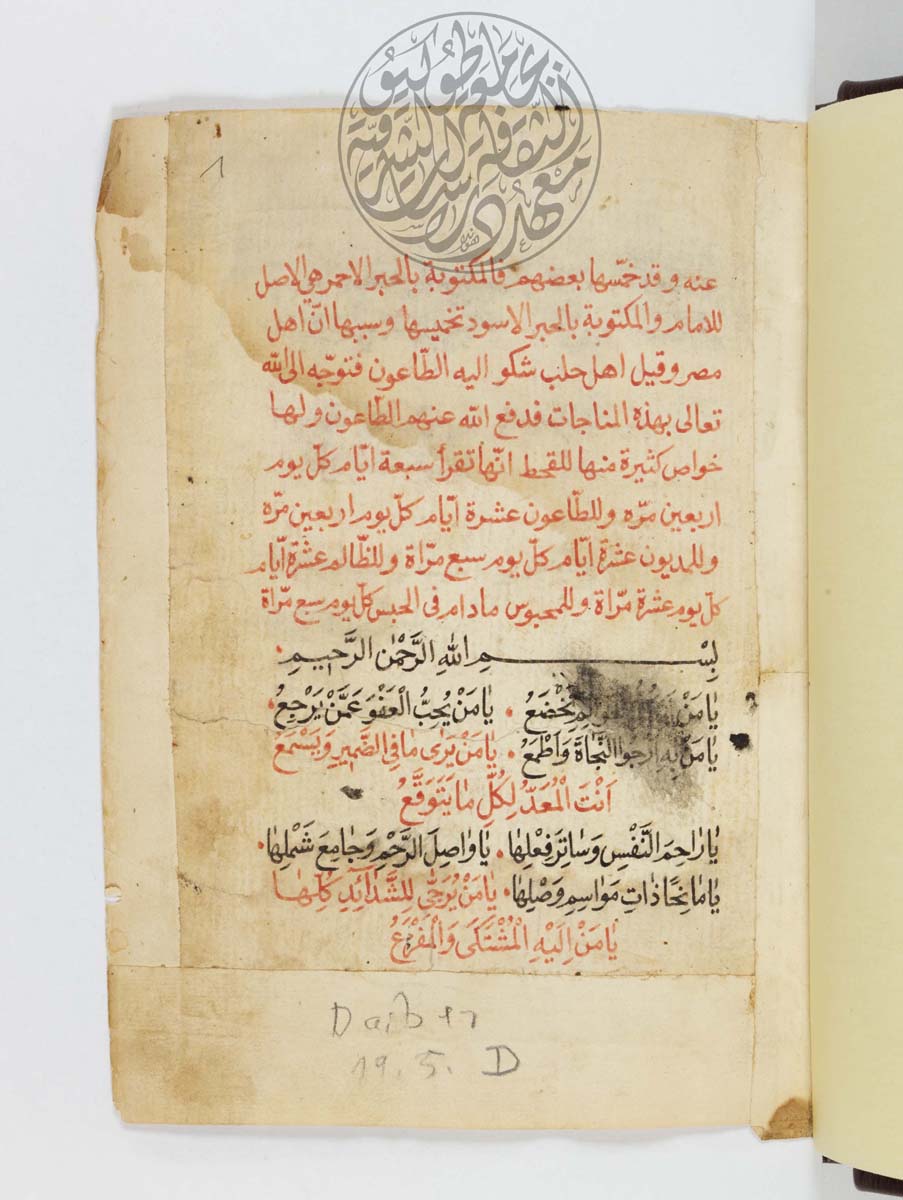 ١
عنه وقد خمّسها بعضهم فالمكتوبة بالحبر الاحمر هى الاصل
للامام والمكتوبة بالحبر الاسود تخميسها وسببها انّ اهل
مصر وقيل اهل حلب شكو اليه الطّاعون فتوجّه الى الله
تعالى بهذه المناجات فدفع الله عنهم الطّاعون ولها
خواص كثيرة منها للقحط انّها تقرأ سبعة ايّام كلّ يوم
اربعين مرّه وللطّاعون عشرة ايّام كلّ يوم اربعين مرّه
وللمديون عشرة ايّام كلّ يوم سبع مرّاة وللظّالم عشرة ايّام
كلّ يوم عشرة مرّاة وللمحبوس مادام فى الحبس كلّ يوم سبع مرّاة
بِسْمِ اللهِ الرَّحْمٰنِ الرَّحِيمِ
يَامَنْ تَخْضَعُ يَامَنْ يُحِبُّ الْعَفْوَ عَمَّنْ يَرْجِعُ
يَامَنْ بِهِ اَرْجُوا النَّجَاةَ وَاَطْمَعُ يَامَنْ يَرٰى مَا فِى الضَّمِيرِ وَيَسْمَعُ
اَنْتَ الْمُعَدُّ لِكُلِّ مَا يَتَوَقَّعُ
يَارَاحِمَ النَّفْسِ وَسَاتِرَ فِعْلِهَا يَاوَاصِلَ الرَّحْمِ وَجَامِعَ شَمْلِهَا
يَامَانِحًا ذَاتِ مَوَاسِمِ وَصْلِهَا يَامَنْ يُرَجّٰى لِلشَّدَآئِدِ كُلِّهَا
يَامَنْ اِلَيْهِ الْمُشْتَكَى وَالْمَفْزَعُ
Daiber
19. 5. D